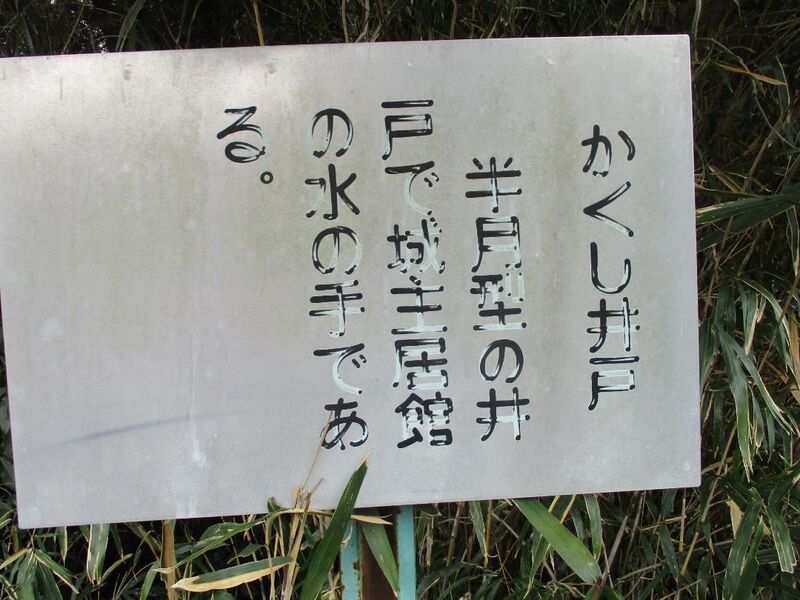 かくし井戸
半月型の井
戸で城主居館
の水の手であ
る。